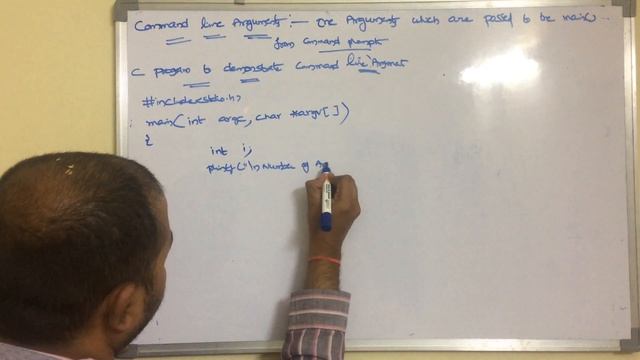 Command line Arguments :- The Arguments which are passed to be main()..
from command prompt
C program to demonstrate Command line Argument
#include<stdio.h>
main(int argc, char *argv[])
{
int i;
printf("\n Number of A